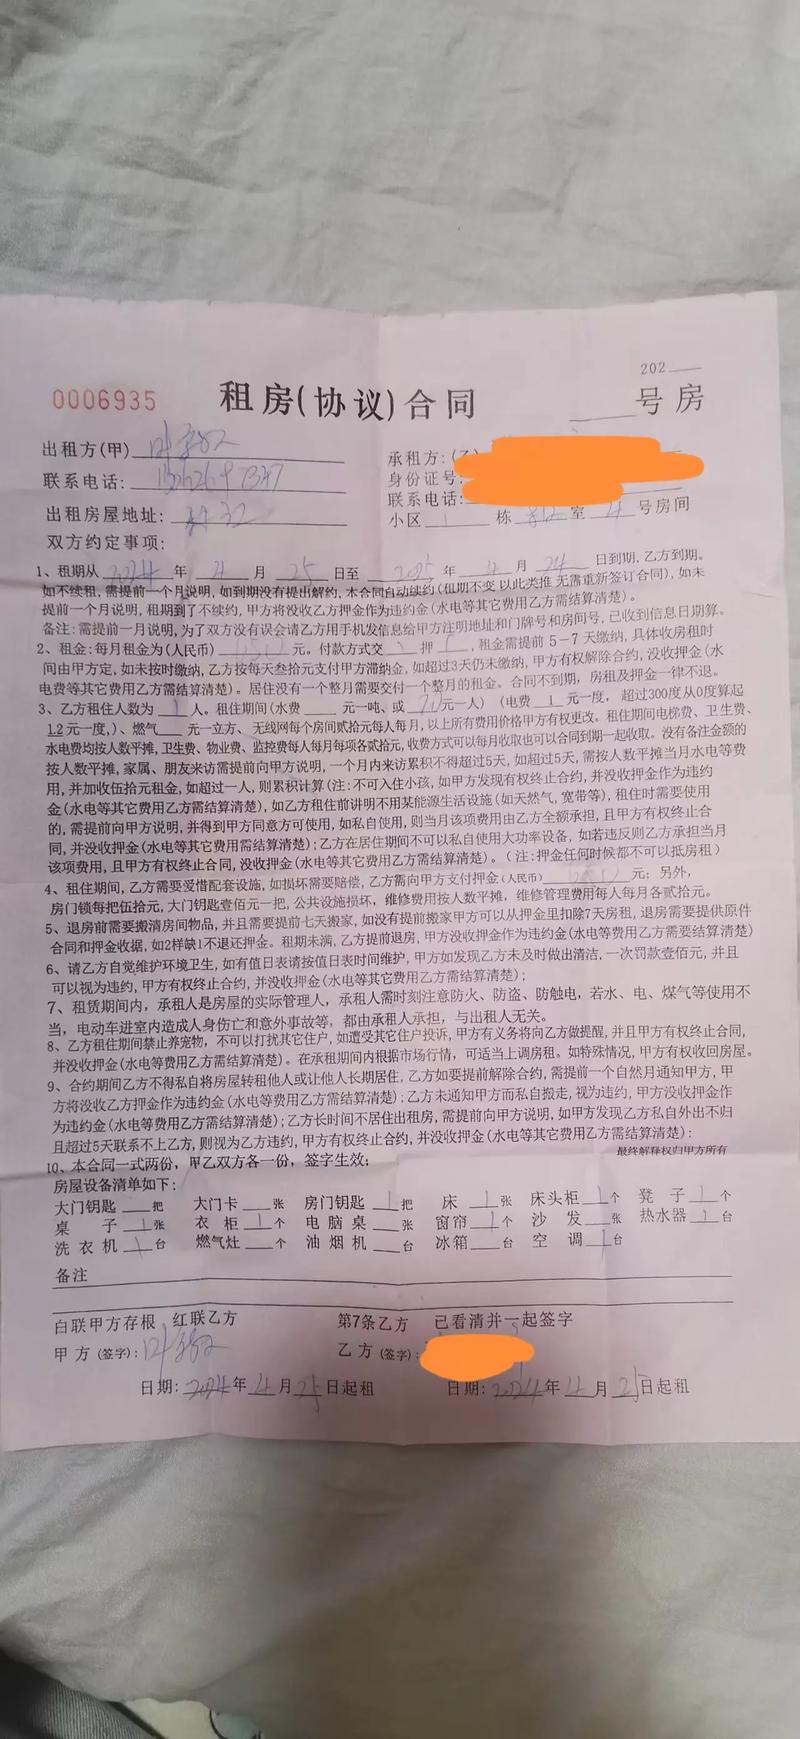 202
0006935 租房(协议)合同 号房
出租方(甲)
联系电话:
出租房屋地址:
承租方:(乙)
身份证号:
联系电话:
小区 1 栋 812 室 4 号房间
双方约定事项:
1、租期从 2024 年 4 月 25 日至 2025 年 4 月 24 日到期,乙方到期。
如不续租,需提前一个月说明,如到期没有提出解约,本合同自动续约(租期不变以此类推无需重新签订合同),如未
提前一个月说明,租期到了不续约,甲方将没收乙方押金作为违约金(水电等其它费用乙方需结算清楚)。
备注:需提前一月说明,为了双方没有误会请乙方用手机发信息给甲方注明地址和门牌号和房间号,已收到信息日期算。
2、租金:每月租金为(人民币) 元。付款方式交 押 ,租金需提前5-7天缴纳,具体收房租时
间由甲方定,如未按时缴纳,乙方按每天叁拾元支付甲方滞纳金,如超过3天仍未缴纳,甲方有权解除合约,没收押金(水
电费等其它费用乙方需结算清楚)。居住没有一个整月需要交付一个整月的租金。合同不到期,房租及押金一律不退。
3、乙方租住人数为 1 人。租住期间(水费 元一吨、或 元一人)(电费 1 元一度,超过300度从0度算起
1.2元一度,)、燃气 元一立方、无线网每个房间贰拾元每人每月,以上所有费用价格甲方有权更改。租住期间电梯费、卫生费、
水电费均按人数平摊,卫生费、物业费、监控费每人每月每项各贰拾元,收费方式可以每月收取也可以合同到期一起收取。没有备注金额的
按人数平摊,家属、朋友来访需提前向甲方说明,一个月内来访累积不得超过5天,如超过5天,需按人数平摊当月水电等费
用,并加收伍拾元租金,如超过一人,则累积计算(注:不可入住小孩,如甲方发现有权终止合约,并没收押金作为违约
金(水电等其它费用乙方需结算清楚),如乙方租住前讲明不用某能源生活设施(如天然气,宽带等),租住时需要使用
的,需提前向甲方说明,并得到甲方同意方可使用,如私自使用,则当月该项费用由乙方全额承担,且甲方有权终止合
同,并没收押金(水电等其它费用需结算清楚);乙方在居住期间不可以私自使用大功率设备,如若违反则乙方承担当月
该项费用,且甲方有权终止合同,没收押金(水电等其它费用乙方需结算清楚)。(注:押金任何时候都不可以抵房租)
4、租住期间,乙方需要爱惜配套设施,如损坏需要赔偿,乙方需向甲方支付押金(人民币) 元;另外,
房门锁每把伍拾元,大门钥匙壹佰元一把,公共设施损坏,维修费用按人数平摊,维修管理费用每人每月各贰拾元。
5、退房前需要搬清房间物品,并且需要提前七天搬家,如没有提前搬家甲方可以从押金里扣除7天房租,退房需要提供原件
合同和押金收据,如2样缺1不退还押金。租期未满,乙方提前退房,甲方没收押金作为违约金(水电等费用乙方需要结算清楚)
6、请乙方自觉维护环境卫生,如有值日表请按值日表时间维护,甲方如发现乙方未及时做出清洁,一次罚款壹佰元,并且
可以视为违约,甲方有权终止合约,并没收押金(水电等其它费用乙方需结算清楚);
7、租赁期间内,承租人是房屋的实际管理人,承租人需时刻注意防火、防盗、防触电,若水、电、煤气等使用不
当,电动车进室内造成人身伤亡和意外事故等,都由承租人承担,与出租人无关。
8、乙方租住期间禁止养宠物,不可以打扰其它住户,如遭受其它住户投诉,甲方有义务将向乙方做提醒,并且甲方有权终止合同,
并没收押金(水电等费用乙方需结算清楚)。在承租期间内根据市场行情,可适当上调房租。如特殊情况,甲方有权收回房屋。
9、合约期间乙方不得私自将房屋转租他人或让他人长期居住,乙方如要提前解除合约,需提前一个自然月通知甲方,甲
方将没收乙方押金作为违约金(水电等费用乙方需结算清楚);乙方未通知甲方而私自搬走,视为违约,甲方没收押金作
为违约金(水电等费用乙方需结算清楚);乙方长时间不居住出租房,需提前向甲方说明,如甲方发现乙方私自外出不归
且超过5天联系不上乙方,则视为乙方违约,甲方有权终止合约,并没收押金(水电等其它费用乙方需结算清楚):
最终解释权归甲方所有
10、本合同一式两份,甲乙双方各一份,签字生效;
房屋设备清单如下:
大门钥匙 把 大门卡 张 房门钥匙 1 把 床 1 张 床头柜 1 个 凳子 1 个
桌子 1 张 衣柜 1 个 电脑桌 张 窗帘 1 个 沙发 张 热水器 1 台
洗衣机 1 台 燃气灶 个 油烟机 台 冰箱 台 空调 1 台
备注
白联甲方存根 红联乙方 第7条乙方 已看清并一起签字
甲方(签字):
乙方(签字):
日期: 2024 年 4 月 25 日起租 日期: 2024 年 4 月 25 日起租